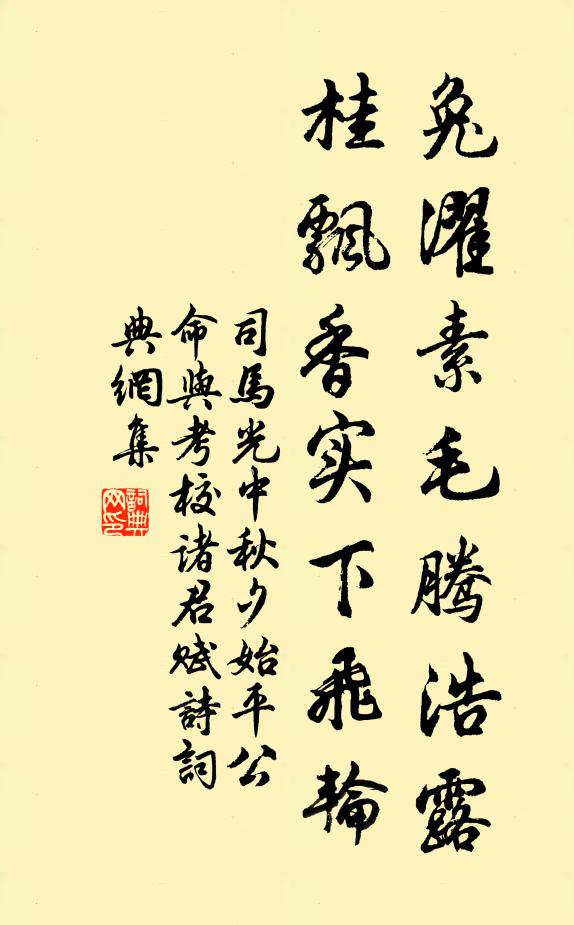 兔濯素毛腾浩露
桂飄香实下飛輪
司馬光中秋夕始平公
命與考校诸君赋詩詞
典網集
詞典
网印